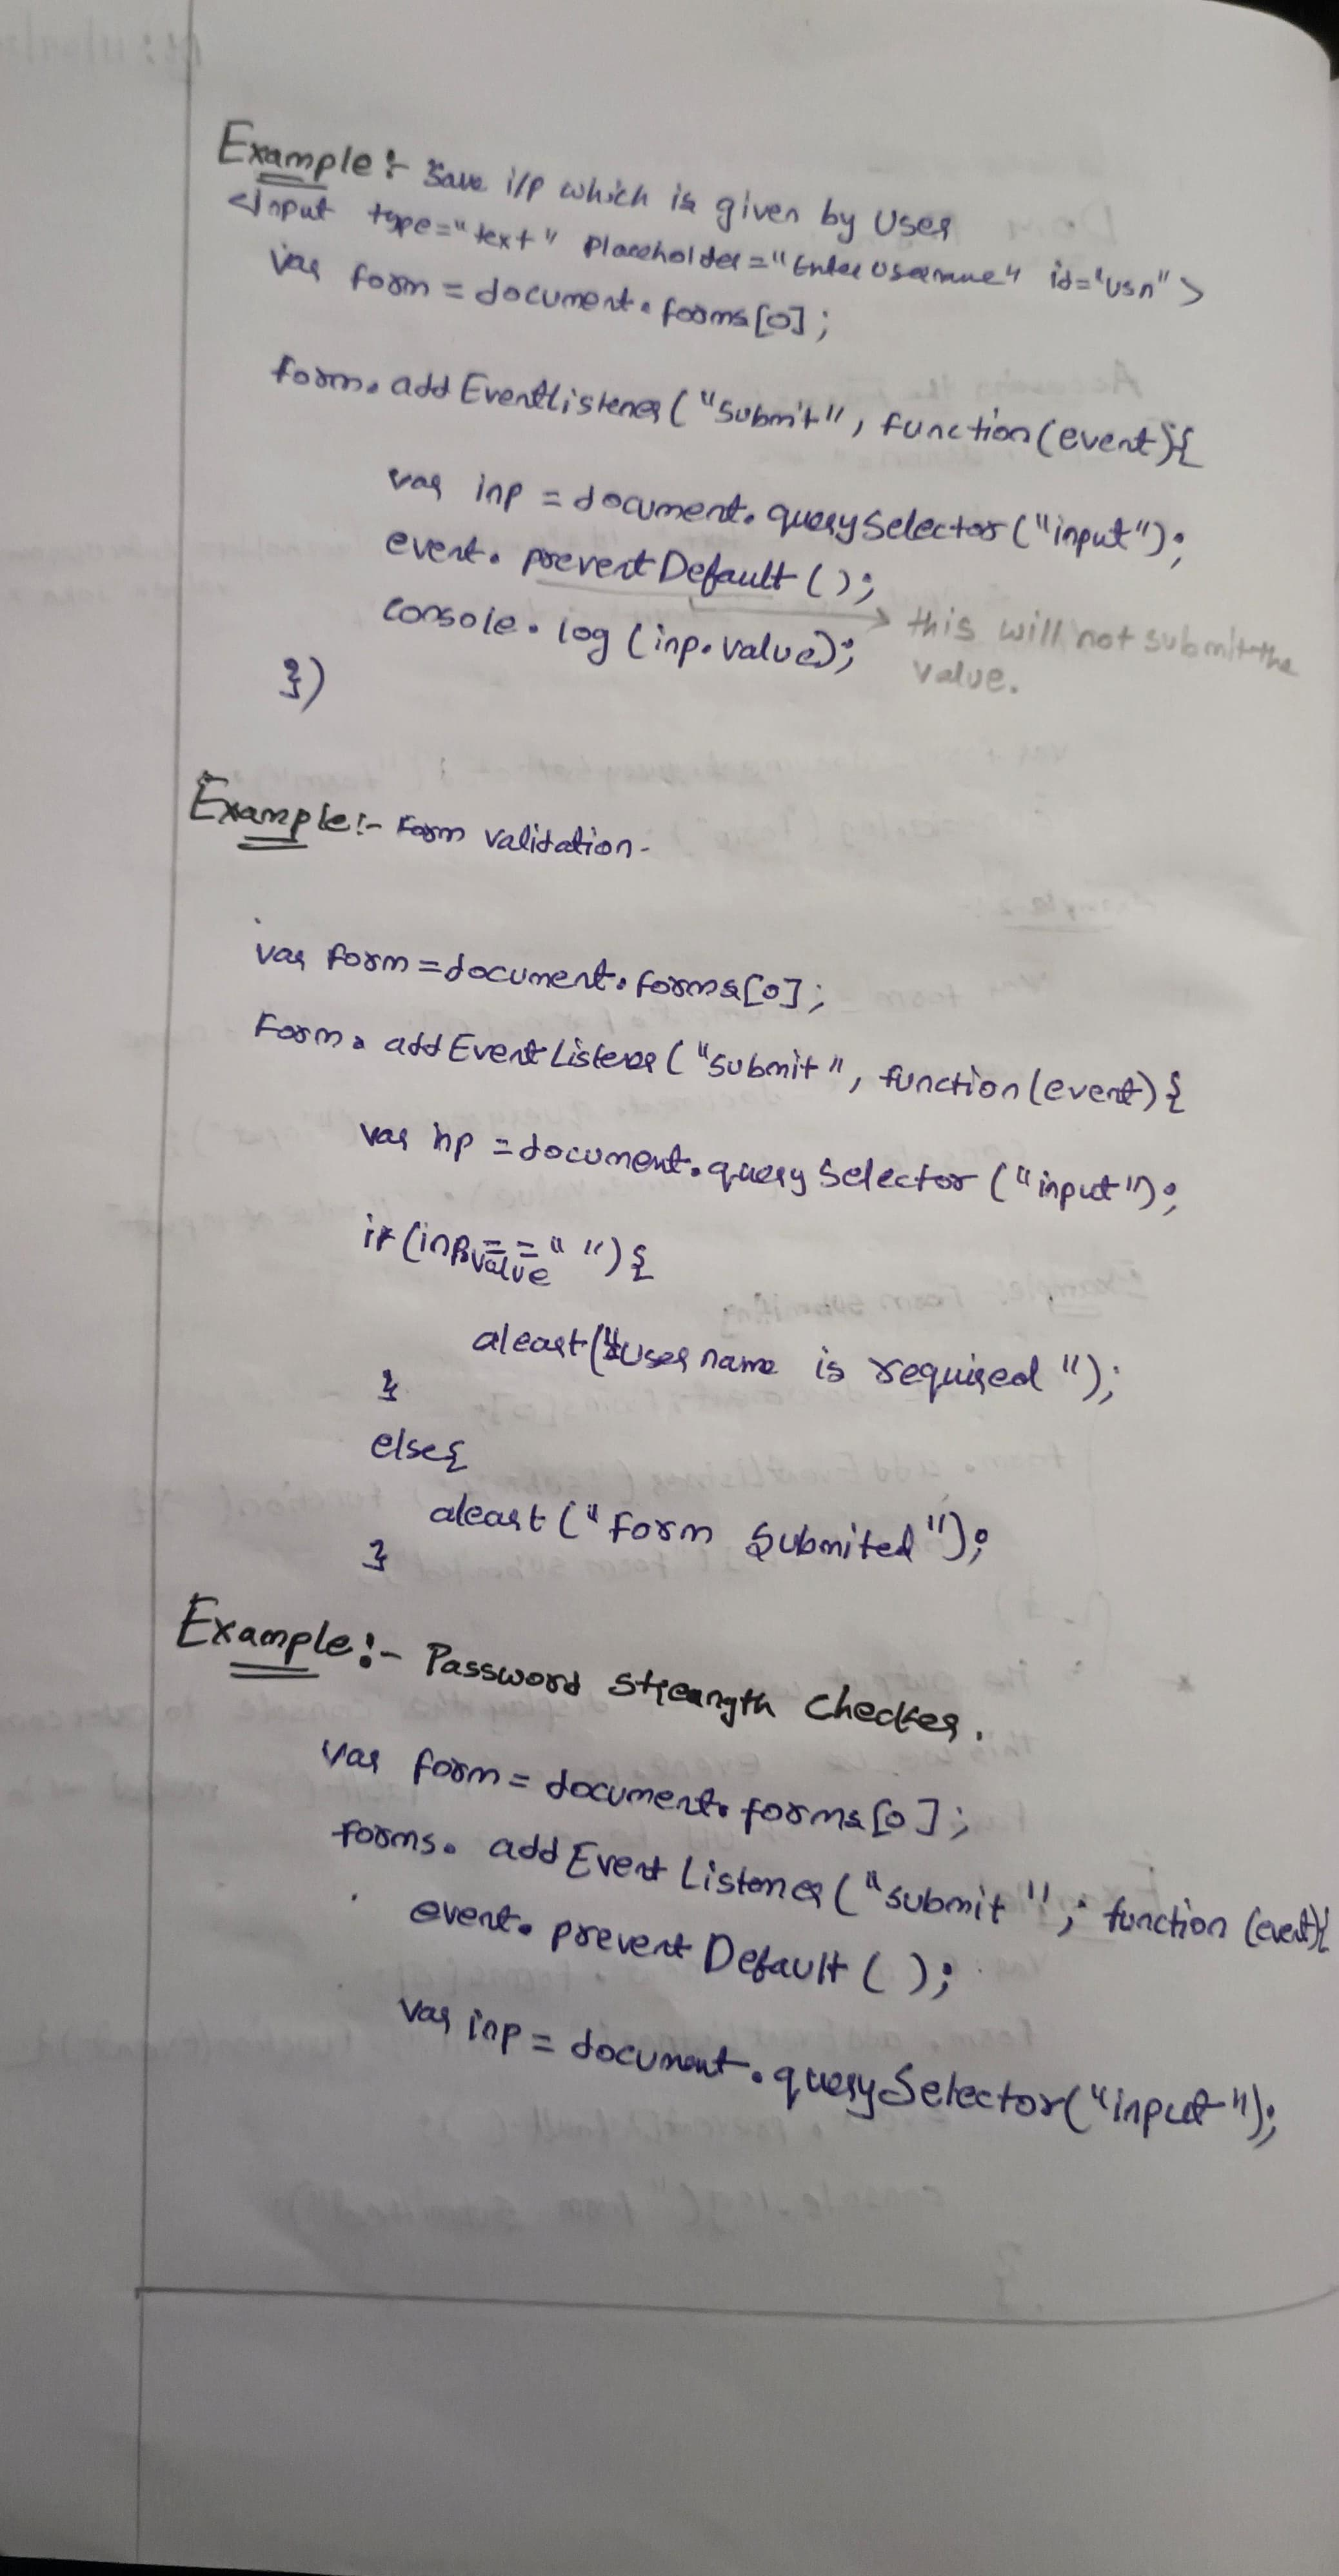 Example :- Save i/p which is given by User
<Input type="text" Placeholder="Enter Username" id="usn">
var form = document.forms[0];
form.addEventListener("submit", function(event){
var inp = document.querySelector("input");
event.preventDefault();
this will not submit the
console.log(inp.value);
value.
})
Example:- Form validation-
var form = document.forms[0];
Form.addEventListener("submit", function(event){
var inp = document.querySelector("input");
if(inp.value== " "){
aleart("User name is required");
}
else{
aleart("Form Submited");
}
Example:- Password Streangth Checker.
var form = document.forms[0];
forms.addEventListener("submit", function (event){
event.preventDefault();
var inp = document.querySelector("input");